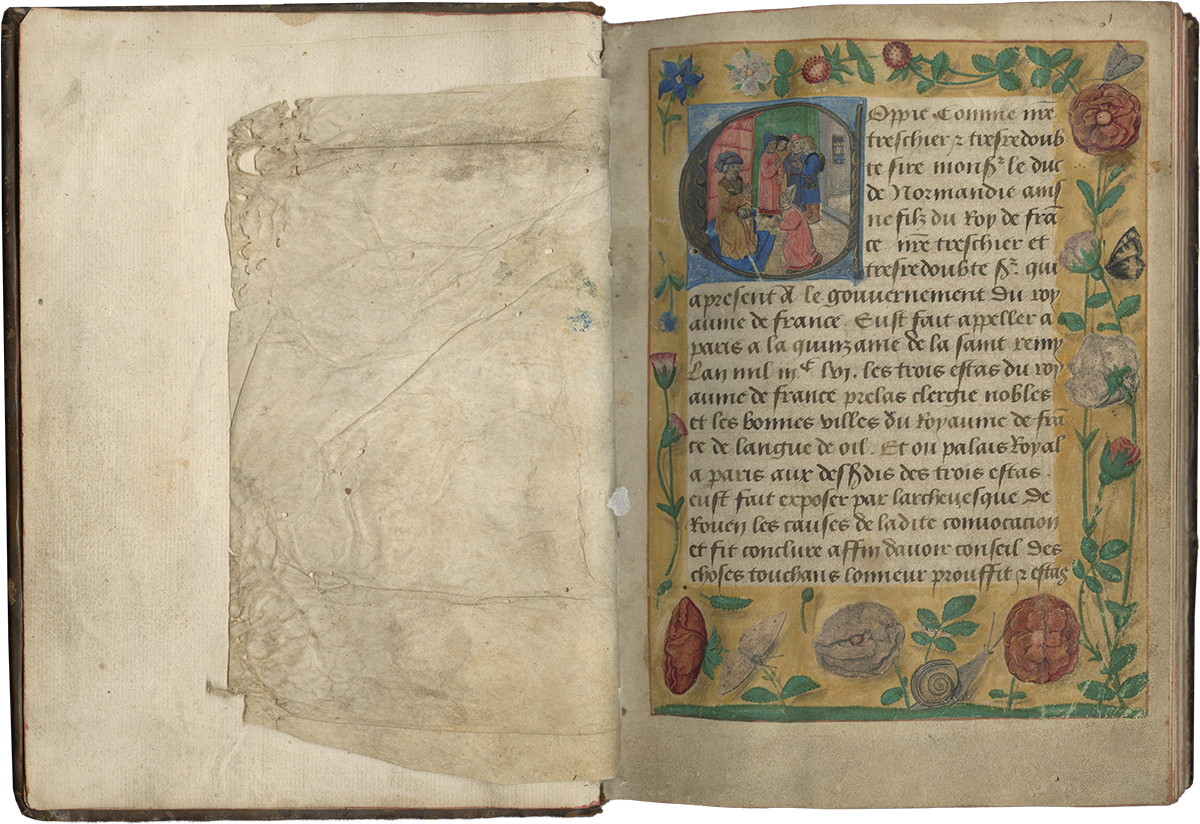 Coppie Comme nr̃e
treschier ⁊ tresredoub
te sire monsr̃ le duc
de Normandie ains
ne filz du Roy de frã
ce nr̃e treschier et
tresredoubte sr̃. qui
apresent A le gouvernement du roy
aume de france. Eust fait appeller a
paris a la quinzaine de la saint remy
Lan mil iiiᶜ lvi. les trois estas du roy
aume de france prelas clergie nobles
et les bonnes villes du Royaume de frã
ce de langue de oil. Et ou palais Royal
a paris aux dessusdis des trois estas.
eust fait exposer par larchevesque de
Rouen les causes de ladite convocation
et fit conclure affin davoir conseil des
choses touchans lonneur prouffit ⁊ estas